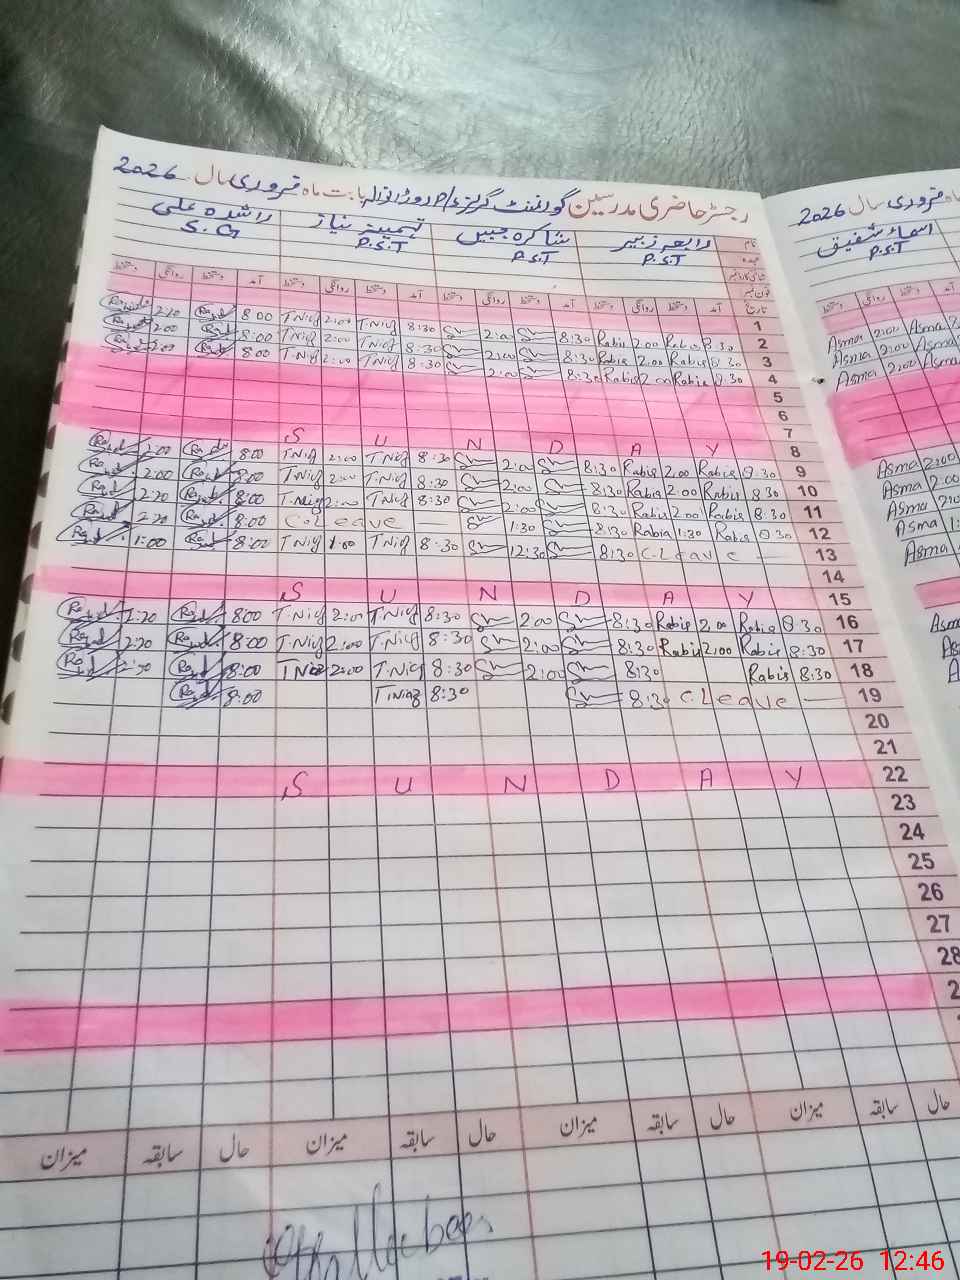 رجسٹر حاضری مدرسین گورنمنٹ گرلز بابت ماہ فروری سال 2026
نام رابعہ زبیر شاکرہ جبیں تہمینہ نیاز راشدہ علی
عہدہ P.S.T P.S.T P.S.T S.G
تاریخ آمد دستخط روانگی دستخط آمد دستخط روانگی دستخط آمد دستخط روانگی دستخط آمد دستخط روانگی دستخط
1
2:20 8:00 T.Niaz 2:00 T.Niaz 8:30 2:00 8:30 Rabia 2:00 Rabia 8:30 2
2:00 8:00 T.Niaz 2:00 T.Niaz 8:30 2:00 8:30 Rabia 2:00 Rabia 8:30 3
2:00 8:00 T.Niaz 2:00 T.Niaz 8:30 2:00 8:30 Rabia 2:00 Rabia 8:30 4
5
6
7
S U N D A Y 8
2:00 8:00 T.Niaz 2:00 T.Niaz 8:30 2:00 8:30 Rabia 2:00 Rabia 8:30 9
2:00 8:00 T.Niaz 2:00 T.Niaz 8:30 2:00 8:30 Rabia 2:00 Rabia 8:30 10
2:20 8:00 T.Niaz 2:00 T.Niaz 8:30 2:00 8:30 Rabia 2:00 Rabia 8:30 11
2:20 8:00 C.Leave 1:30 8:30 Rabia 1:30 Rabia 8:30 12
1:00 8:00 T.Niaz 1:00 T.Niaz 8:30 12:30 8:30 C.Leave 13
14
S U N D A Y 15
2:20 8:00 T.Niaz 2:00 T.Niaz 8:30 2:00 8:30 Rabia 2:00 Rabia 8:30 16
2:20 8:00 T.Niaz 2:00 T.Niaz 8:30 2:00 8:30 Rabia 2:00 Rabia 8:30 17
8:00 T.Niaz 2:00 T.Niaz 8:30 2:00 8:30 Rabia 8:30 18
8:00 T.Niaz 8:30 8:30 C.Leave 19
20
21
S U N D A Y 22
23
24
25
26
27
28
میزان سابقہ حال میزان سابقہ حال میزان سابقہ حال میزان سابقہ حال
ماہ فروری سال 2026
اسماء شفیق
P.S.T
دستخط روانگی دستخط
Asma 2:00 Asma
Asma 2:00 Asma
Asma 2:00 Asma
Asma 2:00
Asma 2:00
Asma
Asma
Asma
19-02-26 12:46